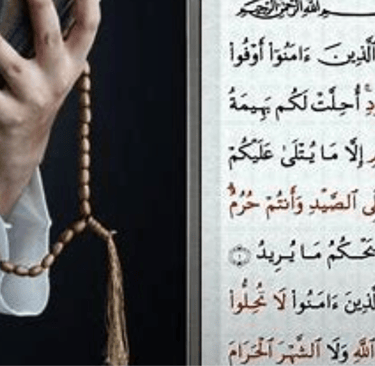 ـسم ٱللَّهِ ٱلرَّحْمَٰنِ ٱلرَّحِيمِ
ٱلَّذِينَ ءَامَنُوٓا۟ أَوْفُوا۟
ـدِۚ أُحِلَّتْ لَكُم بَهِيمَةُ
إِلَّا مَا يُتْلَىٰ عَلَيْكُمْ
ـلِّى ٱلصَّيْدِ وَأَنتُمْ حُرُمٌۗ
يَحْكُمُ مَا يُرِيدُ ١
ٱلَّذِينَ ءَامَنُوا۟ لَا تُحِلُّوا۟
ٱللَّهِ وَلَا ٱلشَّهْرَ ٱلْحَرَامَ